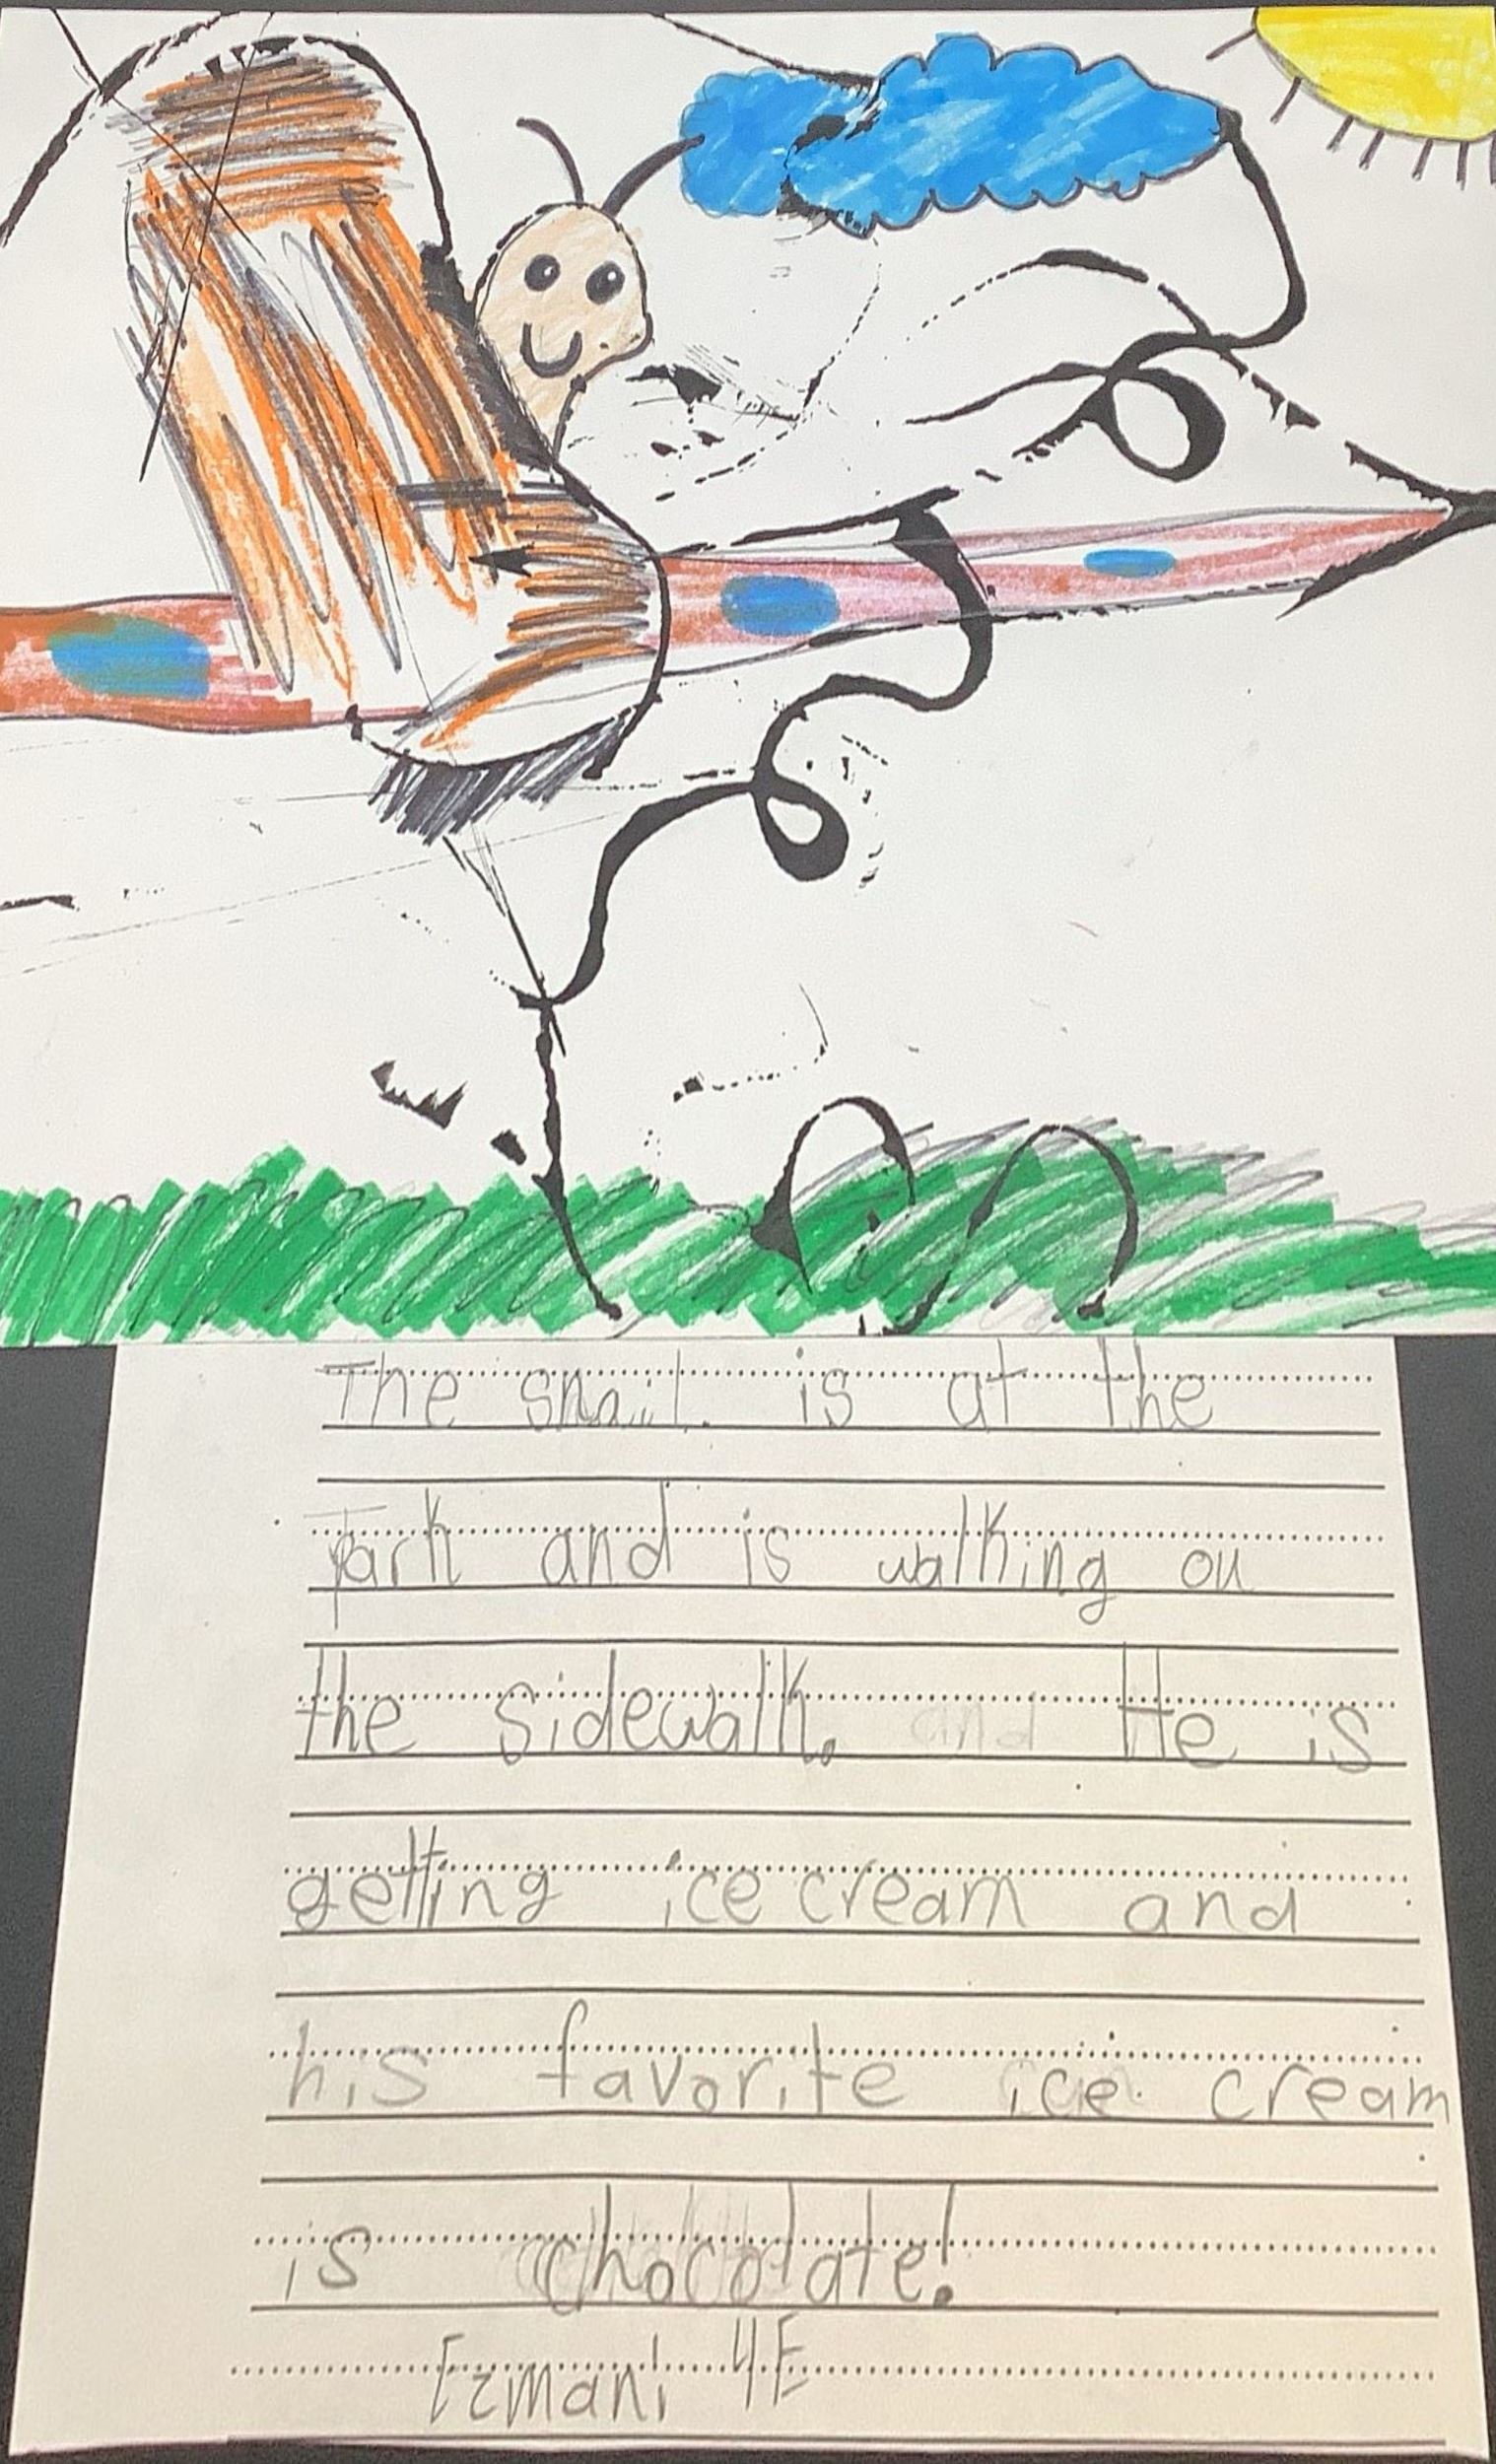 The snail is at the
park and is walking on
the sidewalk. and He is
getting ice cream and
his favorite ice cream
is chocolate!
Ezmani 4E